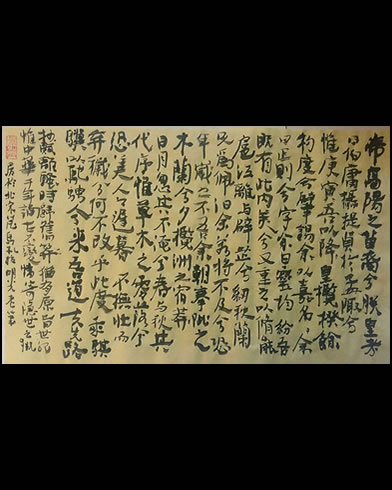 帝高陽之苗裔兮朕皇考
曰伯庸攝提貞於孟陬兮
惟庚寅吾以降皇覽揆餘
初度兮肇錫余以嘉名余
曰正則兮字余曰靈均紛吾
既有此內美兮又重之以脩能
扈江離與辟芷兮紉秋蘭
以為佩汩余若將不及兮恐
年歲之不吾與朝搴阰之
木蘭兮夕攬洲之宿莽
日月忽其不淹兮春與秋其
代序惟草木之零落兮
恐美人之遲暮不撫壯而
棄穢兮何不改乎此度乘騏
驥以馳騁兮來吾道夫先路
離騷時辭舊
惟中華千年
於北京